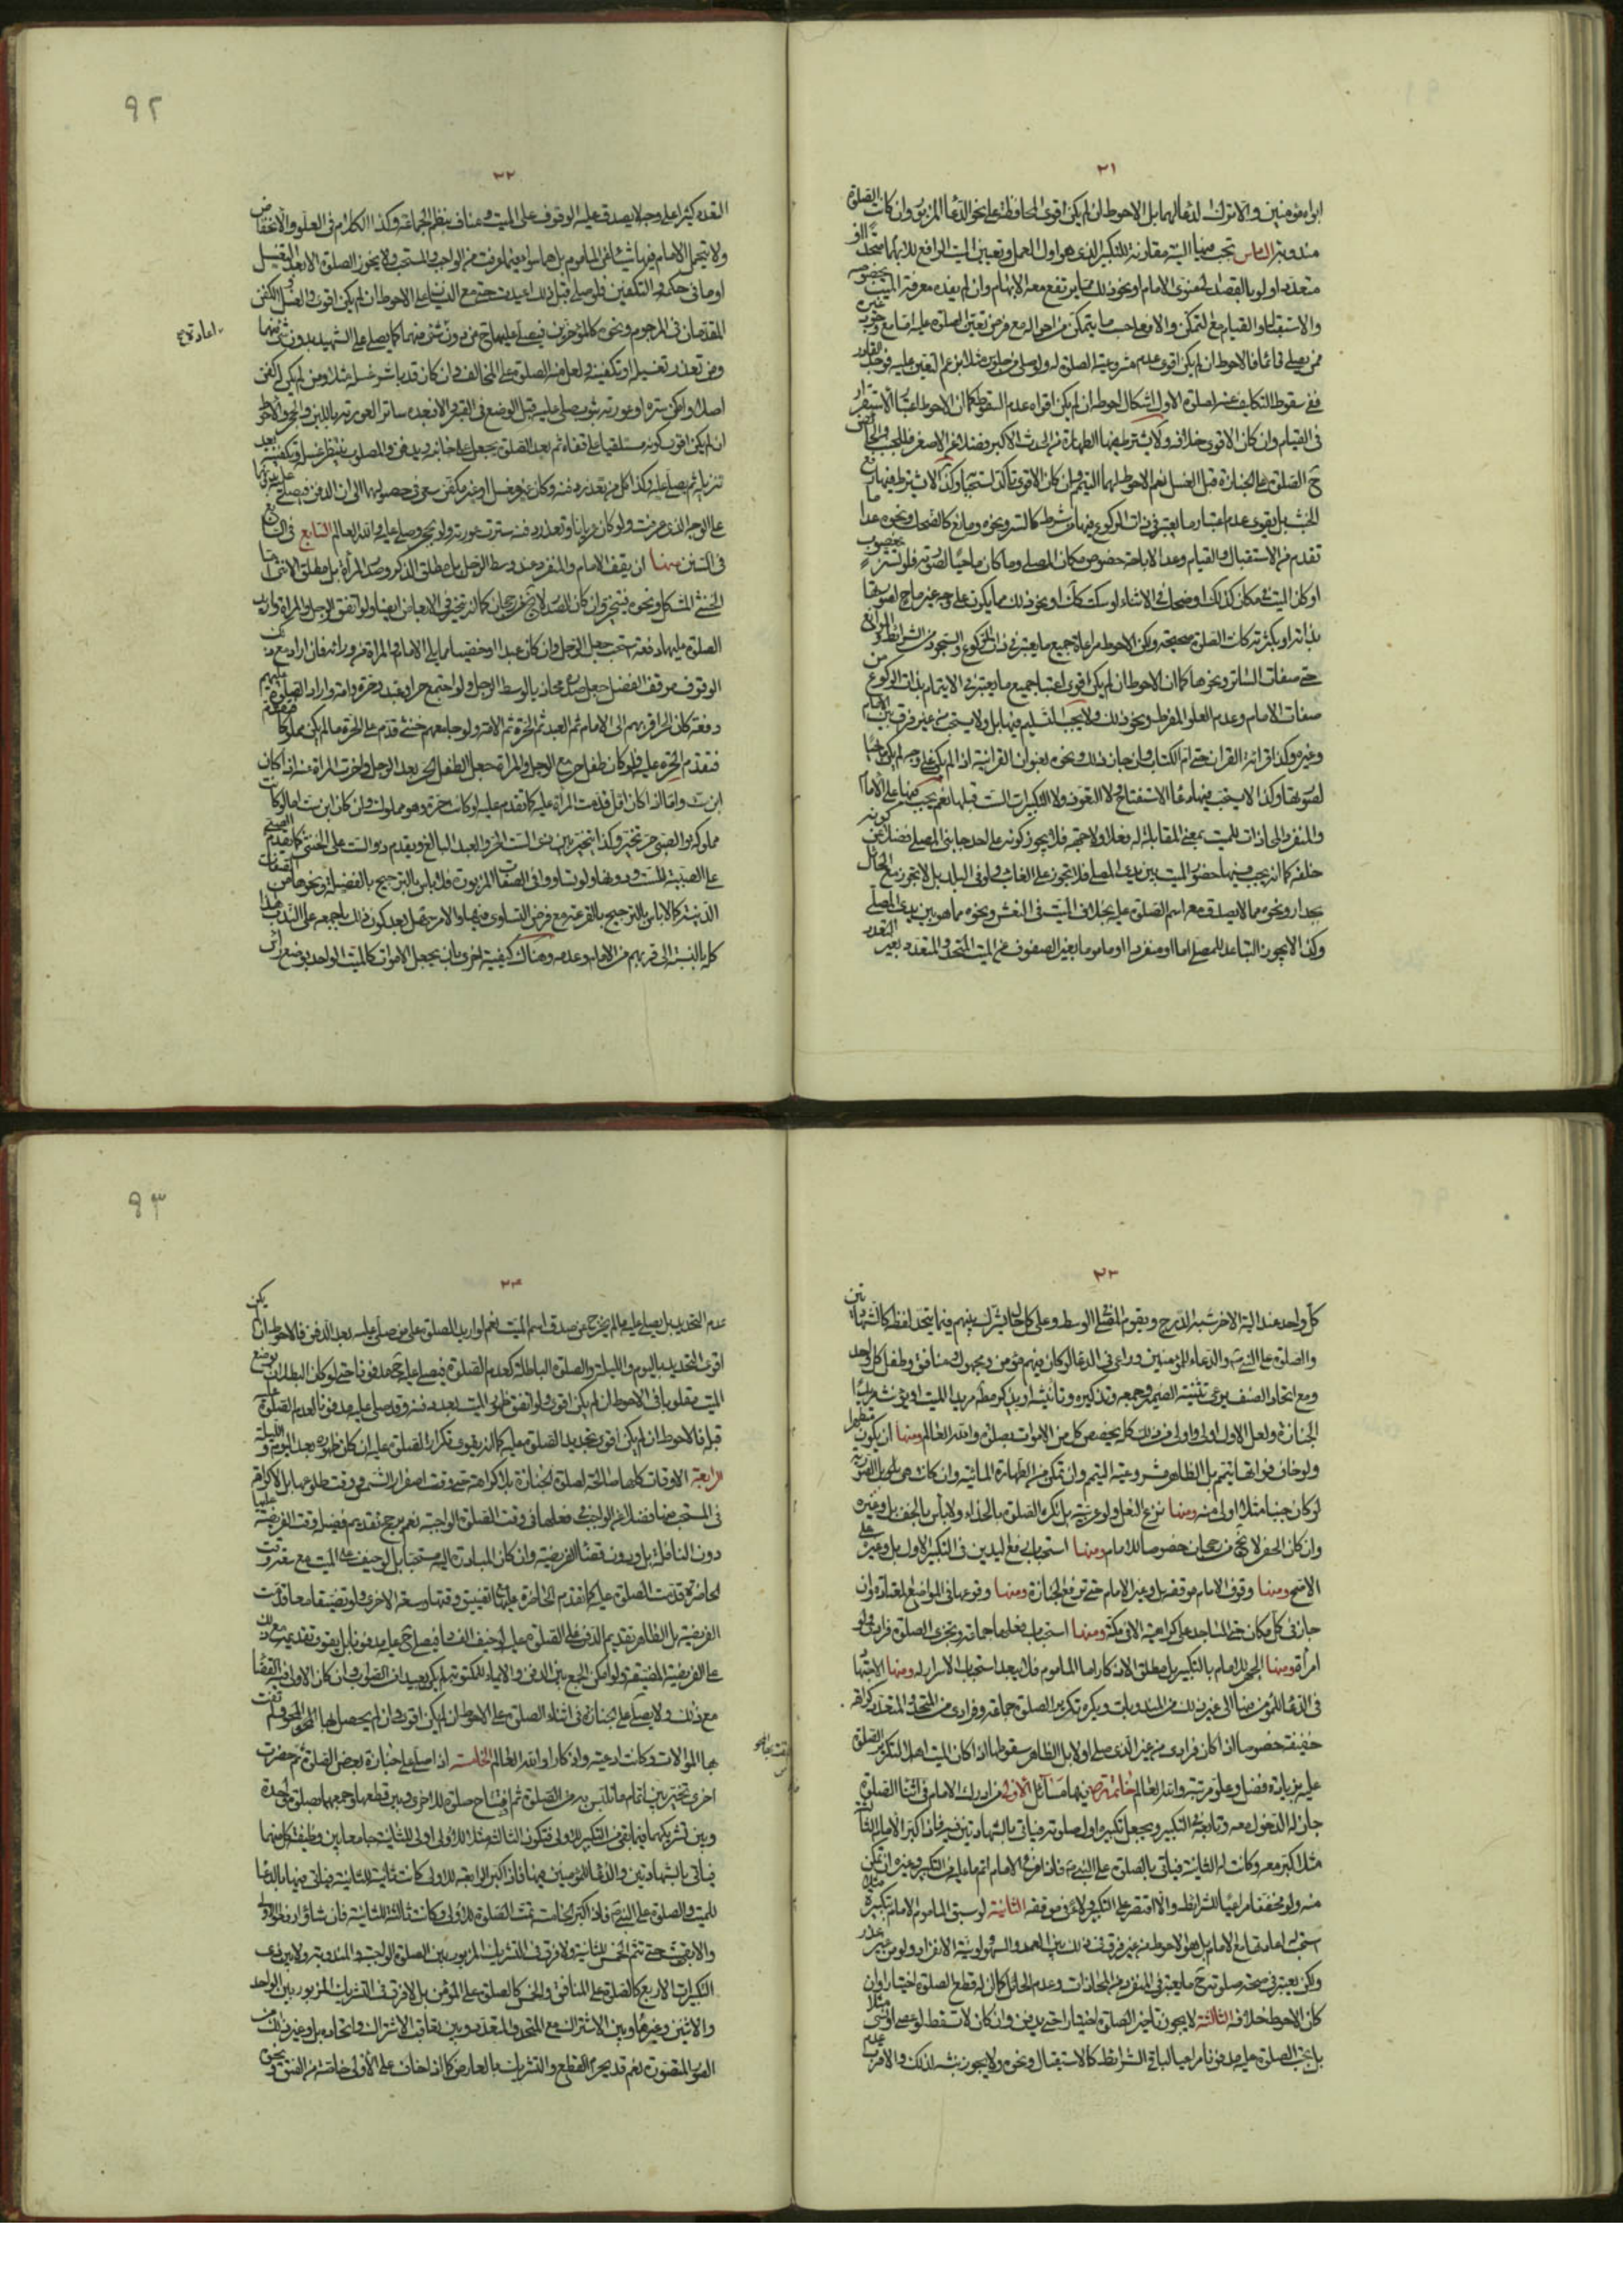 ٢١
ابواه مؤمنين والا ترك الدعاء لهما بل الاحوط ان لم يكن اقوى المحافظة على نحو الدعاء المزبور وان كانت الصلوة
مندوبة السادس تجب فيها النية مقارنة للتكبير الذى هو اول العمل وتعيين الميت الرافع للابهام متحدا او
متعددا ولو بالقصد لمنوى الامام او نحو ذلك مما يرتفع معه الابهام وان لم يفده معرفة الميت بخصوصه
والاستقبال والقيام مع التمكن والا فعل حسب ما يتمكن من احواله مع فرض تعين الصلوة عليه اما مع وجود غيره
ممن يصلى قائما فالاحوط ان لم يكن اقوى عدم مشروعية الصلوة له ولو صلى
ففى سقوط التكليف عنه بصلوة الاول اشكال احوطه ان لم يكن اقواه عدم السقوط كما ان الاحوط اعتبار الاستقرار
فى القيام وان كان الاقوى خلافه ولا يشترط فيها الطهارة من الحدث الاكبر فضلا عن الاصغر فللجنب والحائض
ح الصلوة على الجنازة قبل الغسل نعم الاحوط لهما التيمم وان كان الاقوى تأكد استحبابه وكذا لا يشترط فيها رفع
الخبث بل يقوى عدم اعتبار ما يعتبر فى ذات الركوع فيها من شرط كالستر ونحوه ومانع كالضحك ونحوه عدا ما
تقدم من الاستقبال والقيام وعدا الاباحة خصوص مكان المصلى وما كان ماحيا لصورتها فلو تستر بمغصوب
او كان الميت فى مكان كذلك او ضحك فى الاثناء او سكت كك او نحو ذلك مما يكون على وجه غير ماح لصورتها
بذاته او بكثرته كانت الصلوة صحيحة ولكن الاحوط مراعاة جميع ما يعتبر فى ذات الركوع والسجود من الشرائط والموانع
حتى صفات الساتر ونحوها كما ان الاحوط ان لم يكن اقوى اعتبار جميع ما يعتبر فى الايتمام بذات الركوع من
صفات الامام وعدم العلو المفرط ونحو ذلك ولا يجب التسليم فيها بل ولا يستحب من غير فرق بين الامام
وغيره وكذا قرائة القران حتى ام الكتاب وان جاز ذلك ونحوه بعنوان القرانية اذا لم يكن على وجه يكون ماحيا
لصورتها وكذا لا يستحب فيها دعاء الاستفتاح ولا التعوذ ولا التكبيرات الست قبلها نعم يجب فيها على الامام
والمنفرد المحاذات للميت بمعنى المقابلة له فعلا ولا جهة فلا يجوز كونه على احد جانبى المصلى فضلا عن كونه
خلفه كما انه يجب فيها حضور الميت بين يدى المصلى فلا تجوز على الغائب ولو فى البلد بل لا تجوز مع الحائل
بجدار ونحوه مما لا يصدق معه اسم الصلوة عليه بخلاف الميت فى النعش ونحوه مما هو بين يدى المصلى
وكذا لا يجوز التباعد للمصلى اماما او منفردا او ماموما بغير الصفوف عن الميت المتحد والمتعدد بغير التعدد
٩٢
٢٢
التعدد كثيرا على وجه لا يصدق عليه الوقوف على الميت ومناف بنظم الجماعة وكذا الكلام فى العلو والانخفاض
ولا يتحمل الامام فيها شيئا عن الماموم بل هما سواء فيما عرفت من الواجب والمستحب ولا يجوز الصلوة الا بعد التغسيل
او ما فى حكمه والتكفين فلو صلى قبل ذلك اعيدت حتى مع النسيان على الاحوط ان لم يكن اقوى والغسل والكفن
المقدمان فى المرجوم ونحوه كالمؤخرين فيصلى عليهما ح من دون شئ منهما كما يصلى على الشهيد بدون شئ منهما
ومن تعذر تغسيله او تكفينه
اعادته
اصلا وامكن ستره او عورته بثوب صلى عليه قبل الوضع فى القبر والا فبعده ساتر العورته باللبن والحجر والاحوط
ان لم يكن اقوى كونه مستلقيا على قفاه ثم بعد الصلوة يجعل على جانبه ويدفن والمصلوب ينتظر غسله وتكفينه بعد
تنزيله ثم يصلى عليه وكذا كل من تعذر دفنه وكان غير مغسل او غير مكفن
على الوجه الذى عرفت ولو كان عريانا وتعذر دفنه سترت عورته ولو بحجر وصلى عليه والله العالم السابع فى
فى السنن منها ان يقف الامام والمنفرد عند وسط الرجل بل مطلق الذكر وصدر المرأة بل مطلق الانثى اما
الخنثى المشكل ونحوه فيتخير وان كان الصدر لا يخ عن رجحان كما انه يتخير فى الابعاض ايضا ولو اتفق الرجل والمراة واريد
الصلوة عليهما دفعة استحب جعل الرجل وان كان عبدا او خصيا مما يلى الامام والمراة من ورائه فان اراد مع ذلك
الوقوف موقف الفضل جعل صدرها محاذيا لوسط الرجل ولو اجتمع حر وعبد وحرة وامة واراد الصلوة عليهم
دفعة كان الحر اقربهم الى الامام ثم العبد ثم الحرة ثم الامة ولو جامعهم خنثى قدم على الحرة ما لم يكن مملوكا
فتقدم الحرة عليه ولو كان طفل حر مع الرجل والمراة جعل الطفل الحر بعد الرجل واخرت المراة عنه اذا كان
ابن ست واما اذا كان اقل قدمت المرأة عليه كما تقدم عليه لو كانت حرة وهو مملوك وان كان ابن ست اما لو كانت
مملوكة والصبى حر تخير وكذا يتخير بين ابن الست الحر والعبد البالغ ويقدم ذو الست على الخنثى كما تقدم
على الصبية للست ودونها ولو تساووا فى الصفات المزبورة فلا باس بالترجيح بالفضيلة ونحوها من الصفات
الدينية كما لا باس بالترجيح بالقرعة مع فرض التساوى فيها والامر سهل بعد كون ذلك باجمعه على الندب هذا
كله بالنسبة الى قربهم من الامام وعدمه وهناك كيفية اخرى بان يجعل الاموات كالميت الواحد بوضع رأس
٢٣
كل واحد عند الية الاخر شبه الدرج ويقوم المصلى الوسط وعلى كل حال يشرك بينهم فيما يتحد لفظه كالشهادتين
والصلوة على النبى ص والدعاء للمؤمنين ويراعى فى الدعاء لو كان فيهم مؤمن ومجهول ومنافق وطفل كل واحد
ومع اتحاد الصنف يراعى تثنية الضمير وجمعه وتذكيره وتانيثه او يذكره مطلقا مريدا الميت او يؤنثه مريدا
الجنازة ولعل الاول اولى واولى من ذلك كله تخصيص كل من الاموات بصلوة والله العالم ومنها ان يكون متطهرا
ولو خاف فواتها تيمم بل الظاهر مشروعية التيمم وان تمكن من الطهارة المائية وان كانت هى اولى
لو كان جنبا مثلا اولى منه ومنها نزع النعل ولو عربية بل تكره الصلوة بالحذاء ولا باس بالخف بل وغيره
وان كان الحفى لا يخ من رجحان خصوصا للامام ومنها استحباب رفع اليدين فى التكبير الاول بل وغيره على
الاصح ومنها وقوف الامام موقفه بل وغير الامام حتى ترفع الجنازة ومنها وقوعها فى المواضع المعتادة وان
جاز فى كل مكان حتى المساجد على كراهية الا فى مكة ومنها استحباب فعلها جماعة وتجزى الصلوة فرادى ولو
امرأة ومنها الجهر للامام بالتكبير بل مطلق الاذكار اما الماموم فلا يبعد استحباب الاسرار له ومنها الاجتهاد
فى الدعاء للمؤمن منها الى غير ذلك من المندوبات ويكره تكرير الصلوة جماعة وفرادى من المتحد والمتعدد كراهة
خفيفة خصوصا اذا كان فرادى من غير الذى صلى اولا بل الظاهر سقوطها اذا كان الميت اهلا لتكرير الصلوة
عليه بزيادة فضل وعلو مرتبة والله العالم خاتمة فيها مسائل الاولى من ادرك الامام فى اثناء الصلوة
جاز له الدخول معه وتابعه فى التكبير ويجعل تكبيره اول صلوته فياتى بالشهادتين فيه فاذا كبر الامام الثالثة
مثلا كبر معه وكانت له الثانية فياتى بالصلوة على النبى ص فاذا فرغ الامام اتم ما عليه من التكبير وغيره ان تمكن
منه ولو مخففا مراعيا للشرائط والا اقتصر على التكبير ولاء فى موقفه الثانية لو سبق الماموم الامام بتكبيرة مثلا
استحب له اعادتها مع الامام بل هو الاحوط من غير فرق فى ذلك بين العمد والسهو ولو نية الانفراد ولو من غير عذر
ولكن يعتبر فى صحة صلوته ح ما يعتبر فى المنفرد من المحاذات وعدم الحائل كما ان له قطع الصلوة اختيارا وان
كان الاحوط خلافه الثالثة لا يجوز تاخير الصلوة اختيارا حتى يدفن وان كان لا تسقط لو عصى او نسى مثلا
بل تجب الصلوة عليه مدفونا مراعيا لباقى الشرائط كالاستقبال ونحوه ولا يجوز نبشه لذلك والاقرب عدم
٩٣
٢٤
عدم التحديد بل يصلى عليه ما لم يخرج عن صدق اسم الميت نعم لو اريد الصلوة على من صلى عليه بعد الدفن فالاحوط ان لم يكن
اقوى التحديد باليوم والليلة والصلوة الباطلة كعدم الصلوة فيصلى عليه ح مدفونا حتى لو كان البطلان بوضع
الميت مقلوبا فى الاحوط ان لم يكن اقوى ولو اتفق ظهور الميت بعد دفنه وقد صلى عليه مدفونا لعدم الصلوة عليه
قبل فالاحوط ان لم يكن اقوى تجديد الصلوة عليه كما انه يقوى تكرار الصلوة عليه ان كان ظهوره بعد اليوم والليلة
الرابعة الاوقات كلها صالحة لصلوة الجنازة بلا كراهة حتى وقت اصفرار الشمس ووقت طلوعها بل لا كراهة
فى المستحب منها فضلا عن الواجب فى فعلها فى وقت الصلوة الواجبة نعم يرجح تقديم فضل وقت الفريضة عليها
دون النافلة بل ودون قضاء الفريضة وان كان المبادرة اليه مستحبا بل لو خيف على الميت مع سعة وقت
الحاضرة قدمت الصلوة عليه كما تقدم الحاضرة عليها مع تضيق وقتها وسعة الاخرى ولو تضيقا معا قدمت
الفريضة بل الظاهر تقديم الدفن على الصلوة عليه لو خيف الفساد فيصلى ح عليه مدفونا بل يقوى تقديمه مع ذلك
على الفريضة المضيقة ولو امكن الجمع بين الدفن والايماء للمكتوبة لم يكن بعيدا من الصواب وان كان الاولى فيه القضاء
مع ذلك ولا يصلى على الجنازة فى اثناء الصلوة على الاحوط ان لم يكن اقوى وان لم يحصل بها المحو ولم تفت
بها الموالات وكانت ادعية واذكارا والله العالم الخامسة اذا صلى على جنازة بعض الصلوة ثم حضرت
اخرى تخير بين اتمام ما تلبس به من الصلوة ثم افتتاح صلوة للاخرى وبين قطعها وجمعهما بصلوة واحدة
وبين تشريكهما فيما بقى من التكبير للاولى فتكون الثالثة مثلا للاولى اولى للثانية جامعا بين وظيفة كل منهما
فياتى بالشهادتين والدعاء للمؤمنين فيها فاذا كبر الرابعة للاولى كانت ثانية للثانية فياتى فيها بالدعاء
للميت والصلوة على النبى ص فاذا كبر الخامسة تمت الصلوة للاولى وكانت ثالثة للثانية فان شاؤا رفعوا الاولى
والا بقيت حتى تتم الخمس للثانية ولا فرق فى التشريك المزبور بين الصلوة الواجبة والمندوبة ولا بين ذى
التكبيرات الاربع كالصلوة على المنافق والخمس كالصلوة على المؤمن بل لا فرق فى التشريك المزبور بين الواحد
والاثنين وغيرهما وبين الاشتراك مع المتحد والمتعدد وبين تعاقب الاشتراك واتحاده بل وغير ذلك من
الصور المتصورة نعم قد يحرم القطع والتشريك بالعارض كما اذا خاف على الاولى خاصة من الفتق ونحوه